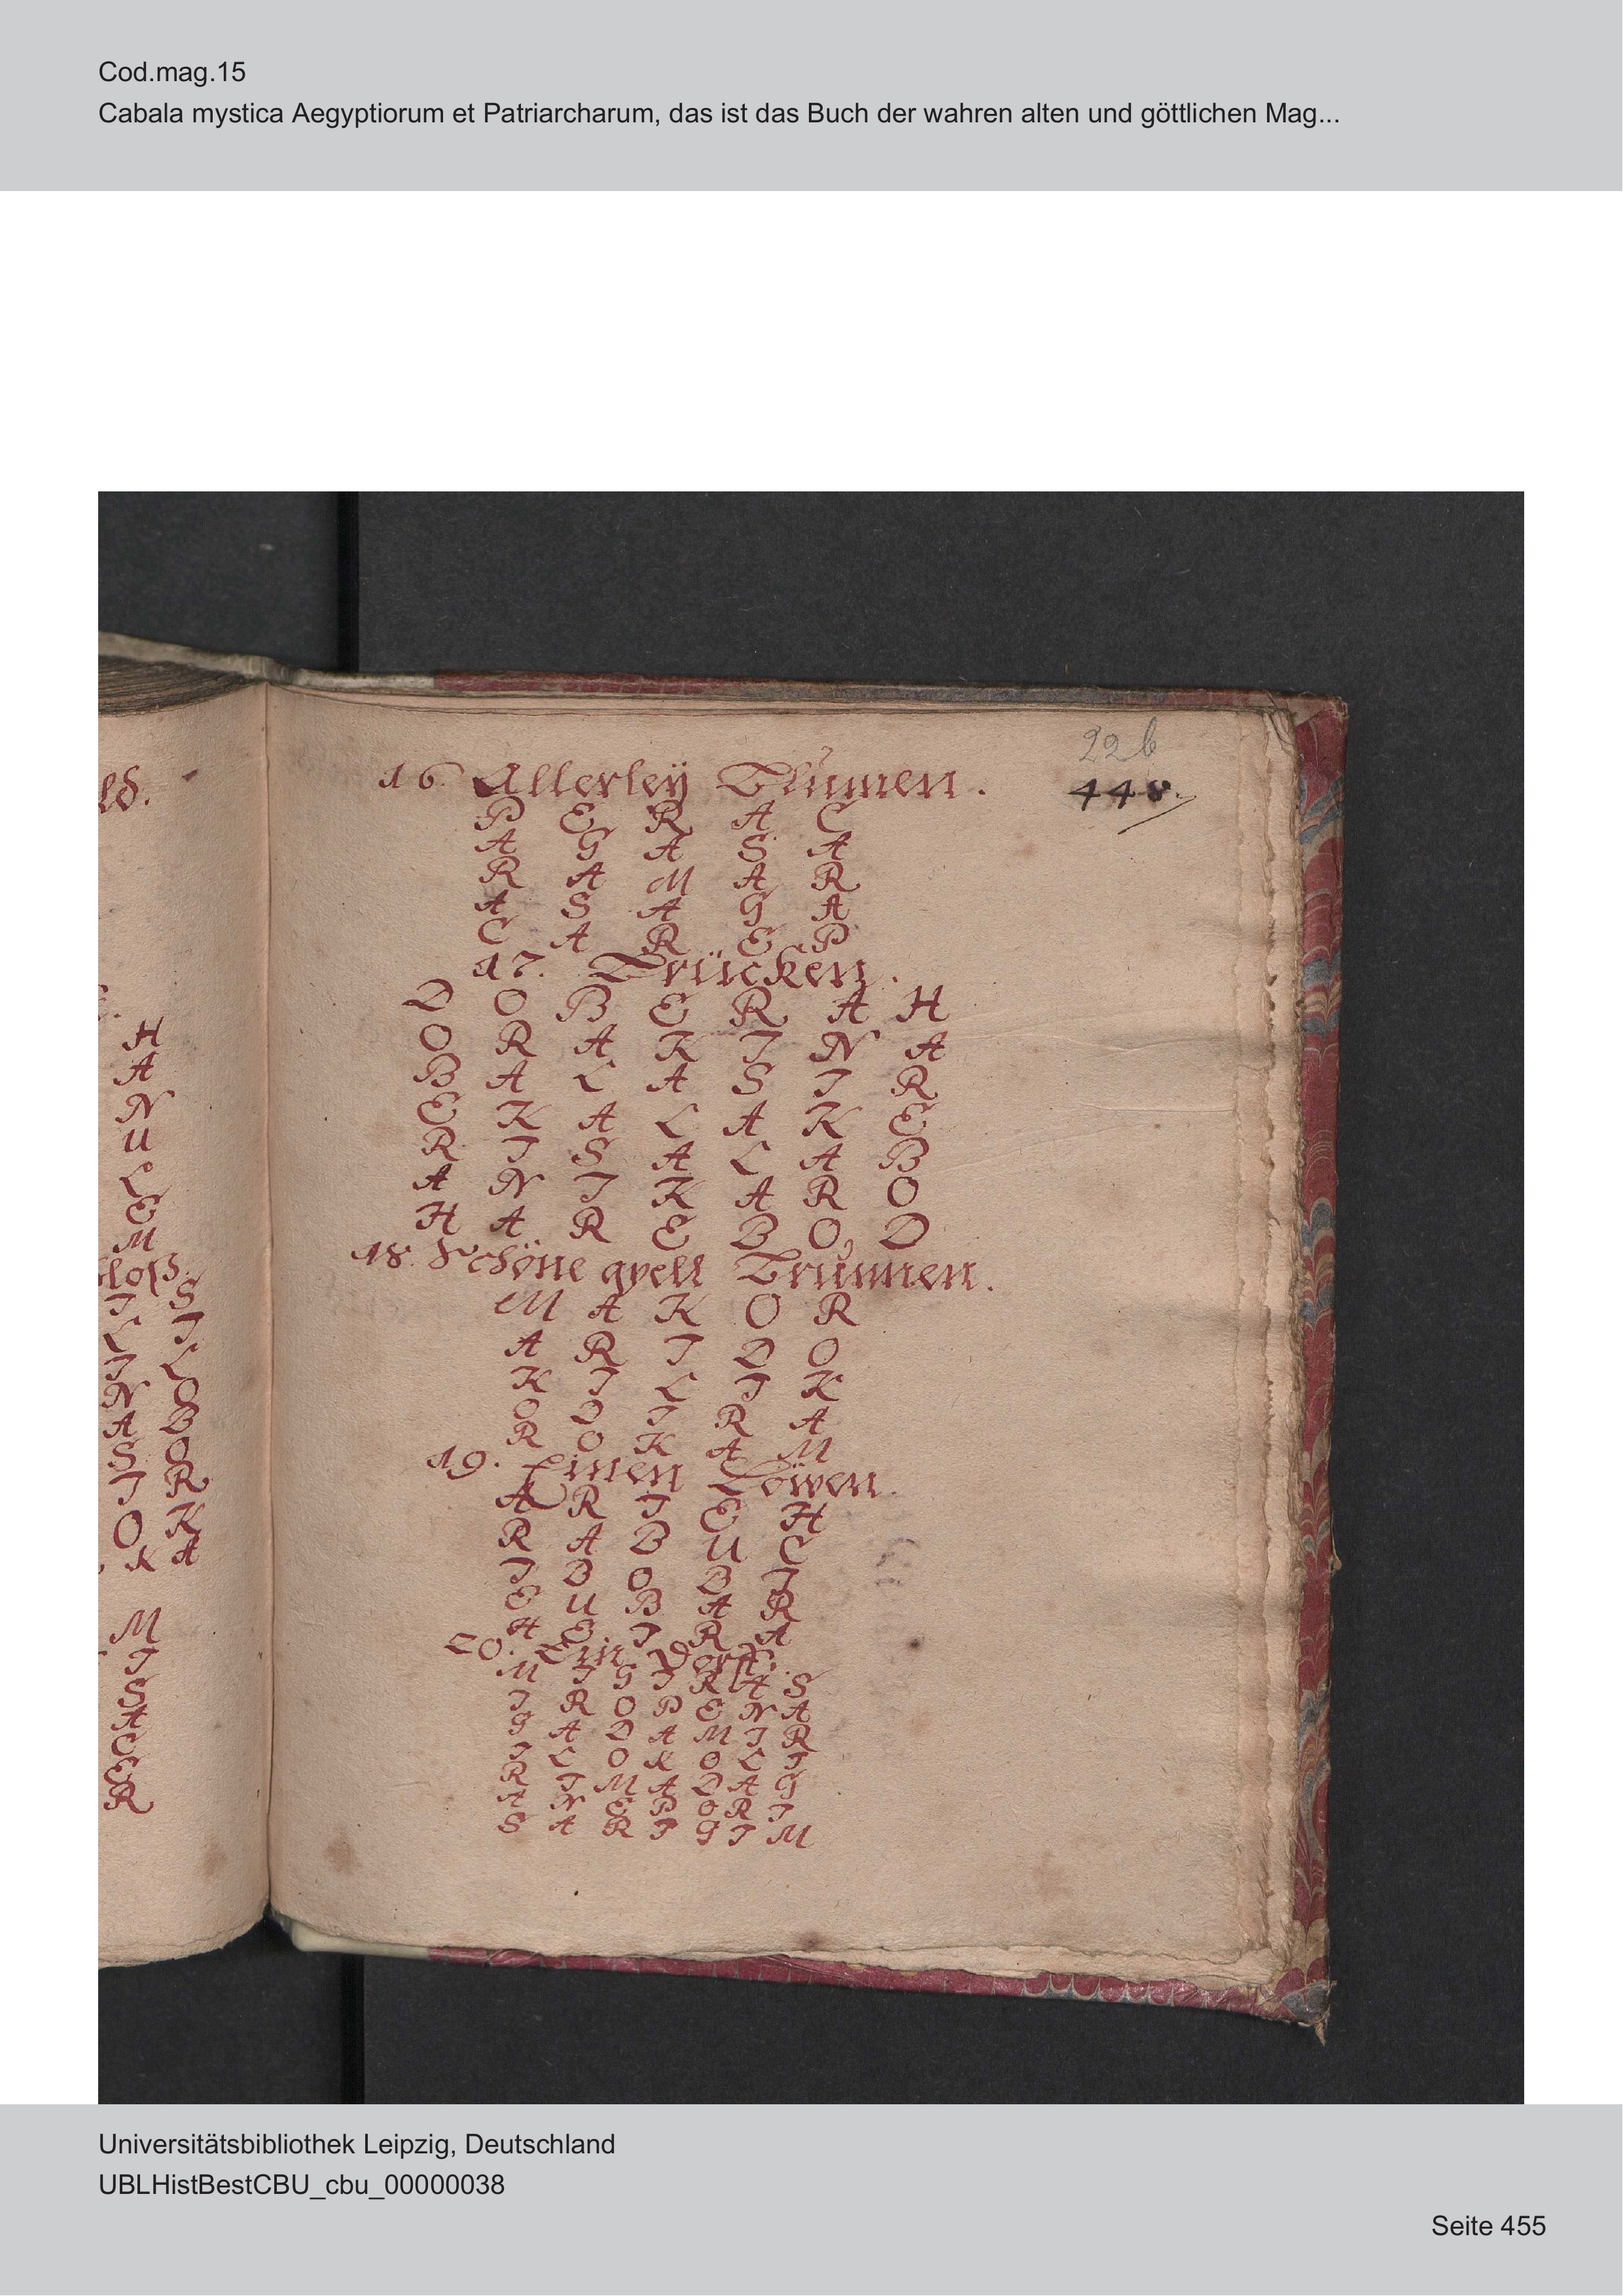 Cod.mag.15
Cabala mystica Aegyptiorum et Patriarcharum, das ist das Buch der wahren alten und göttlichen Mag...
22 b
448.
16. Allerleÿ Blumen.
P E R A C
A G A S A
R A M A R
A S A G A
C A R E P
17. Brücken.
D O B E R A H
O R A K I N A
B A L A S I R
E K A L A K E
R I S A L A B
A N I K A R O
H A R E B O D
18. Schöne qvell Brunnen.
M A K O R
A R I D O
K I L I K
O D I R A
R O K A M
19. Einen Löwen.
A R I E H
R A B U C
I B O B I
E U B A R
H E I R A
20. Ein Dorff.
M I G I R A S
I R O P E N A
G A D A M I R
I L O K O L I
R I M A D A G
A N E P O R I
S A R I G I M
H
A
N
U
L
E
M
I S
L I
I L
N O
A B
S O
I R
O K
K A
M
I
S
A
C
E
R
Universitätsbibliothek Leipzig, Deutschland
UBLHistBestCBU_cbu_00000038
Seite 455